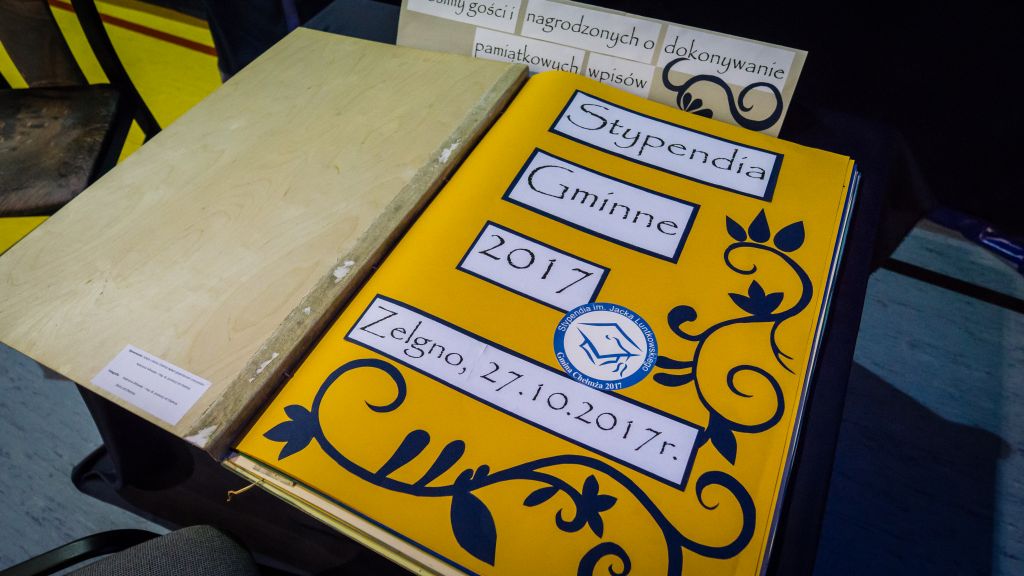 gości i
nagrodzonych o
dokonywanie
pamiątkowych
wpisów
Stypendia
Gminne
2017
Stypendia im. Jacka Luntkowskiego
Gmina Chełmża 2017
Zelgno, 27.10.2017r.